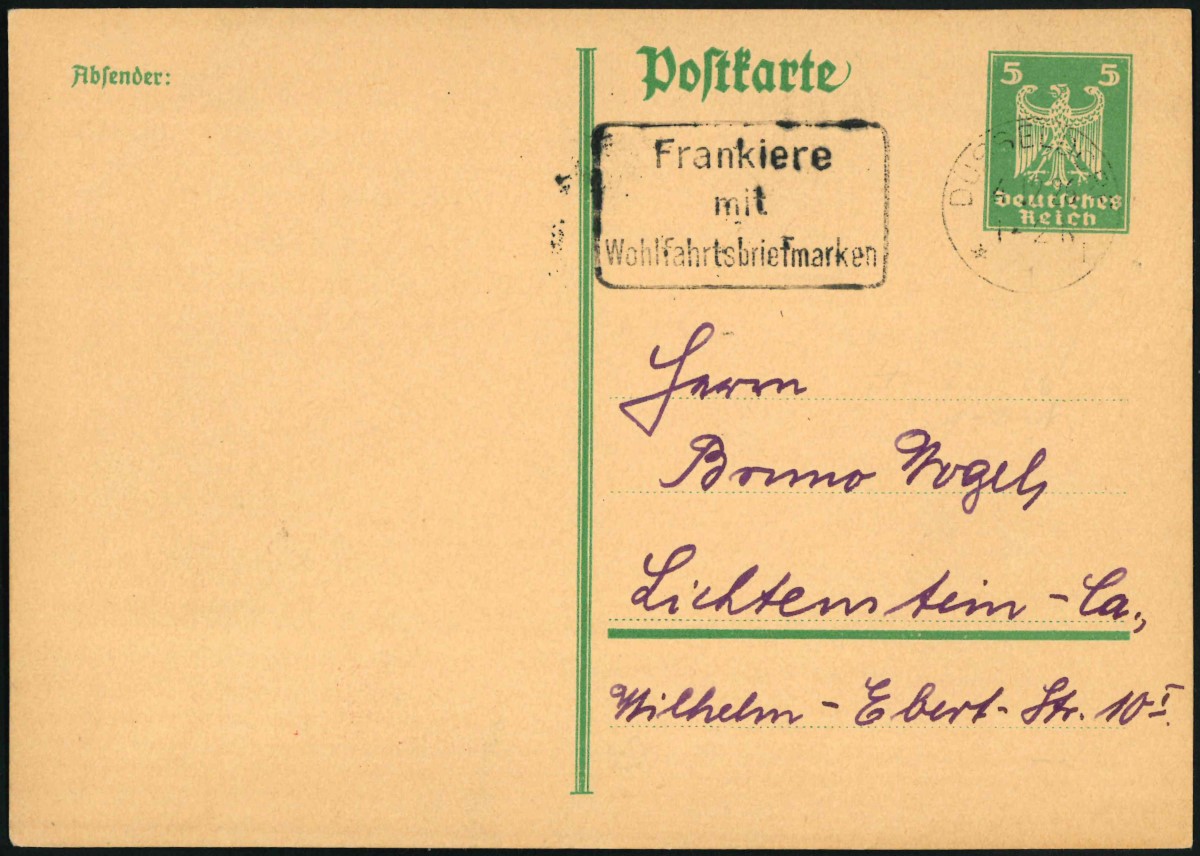 Absender:
Postkarte
5 5
Deutsches
Reich
Frankiere
mit
Wohlfahrtsbriefmarken
Herrn
Bruno Vogel,
Lichtenstein-Ca.,
Wilhelm-Ebert-Str. 10 I.